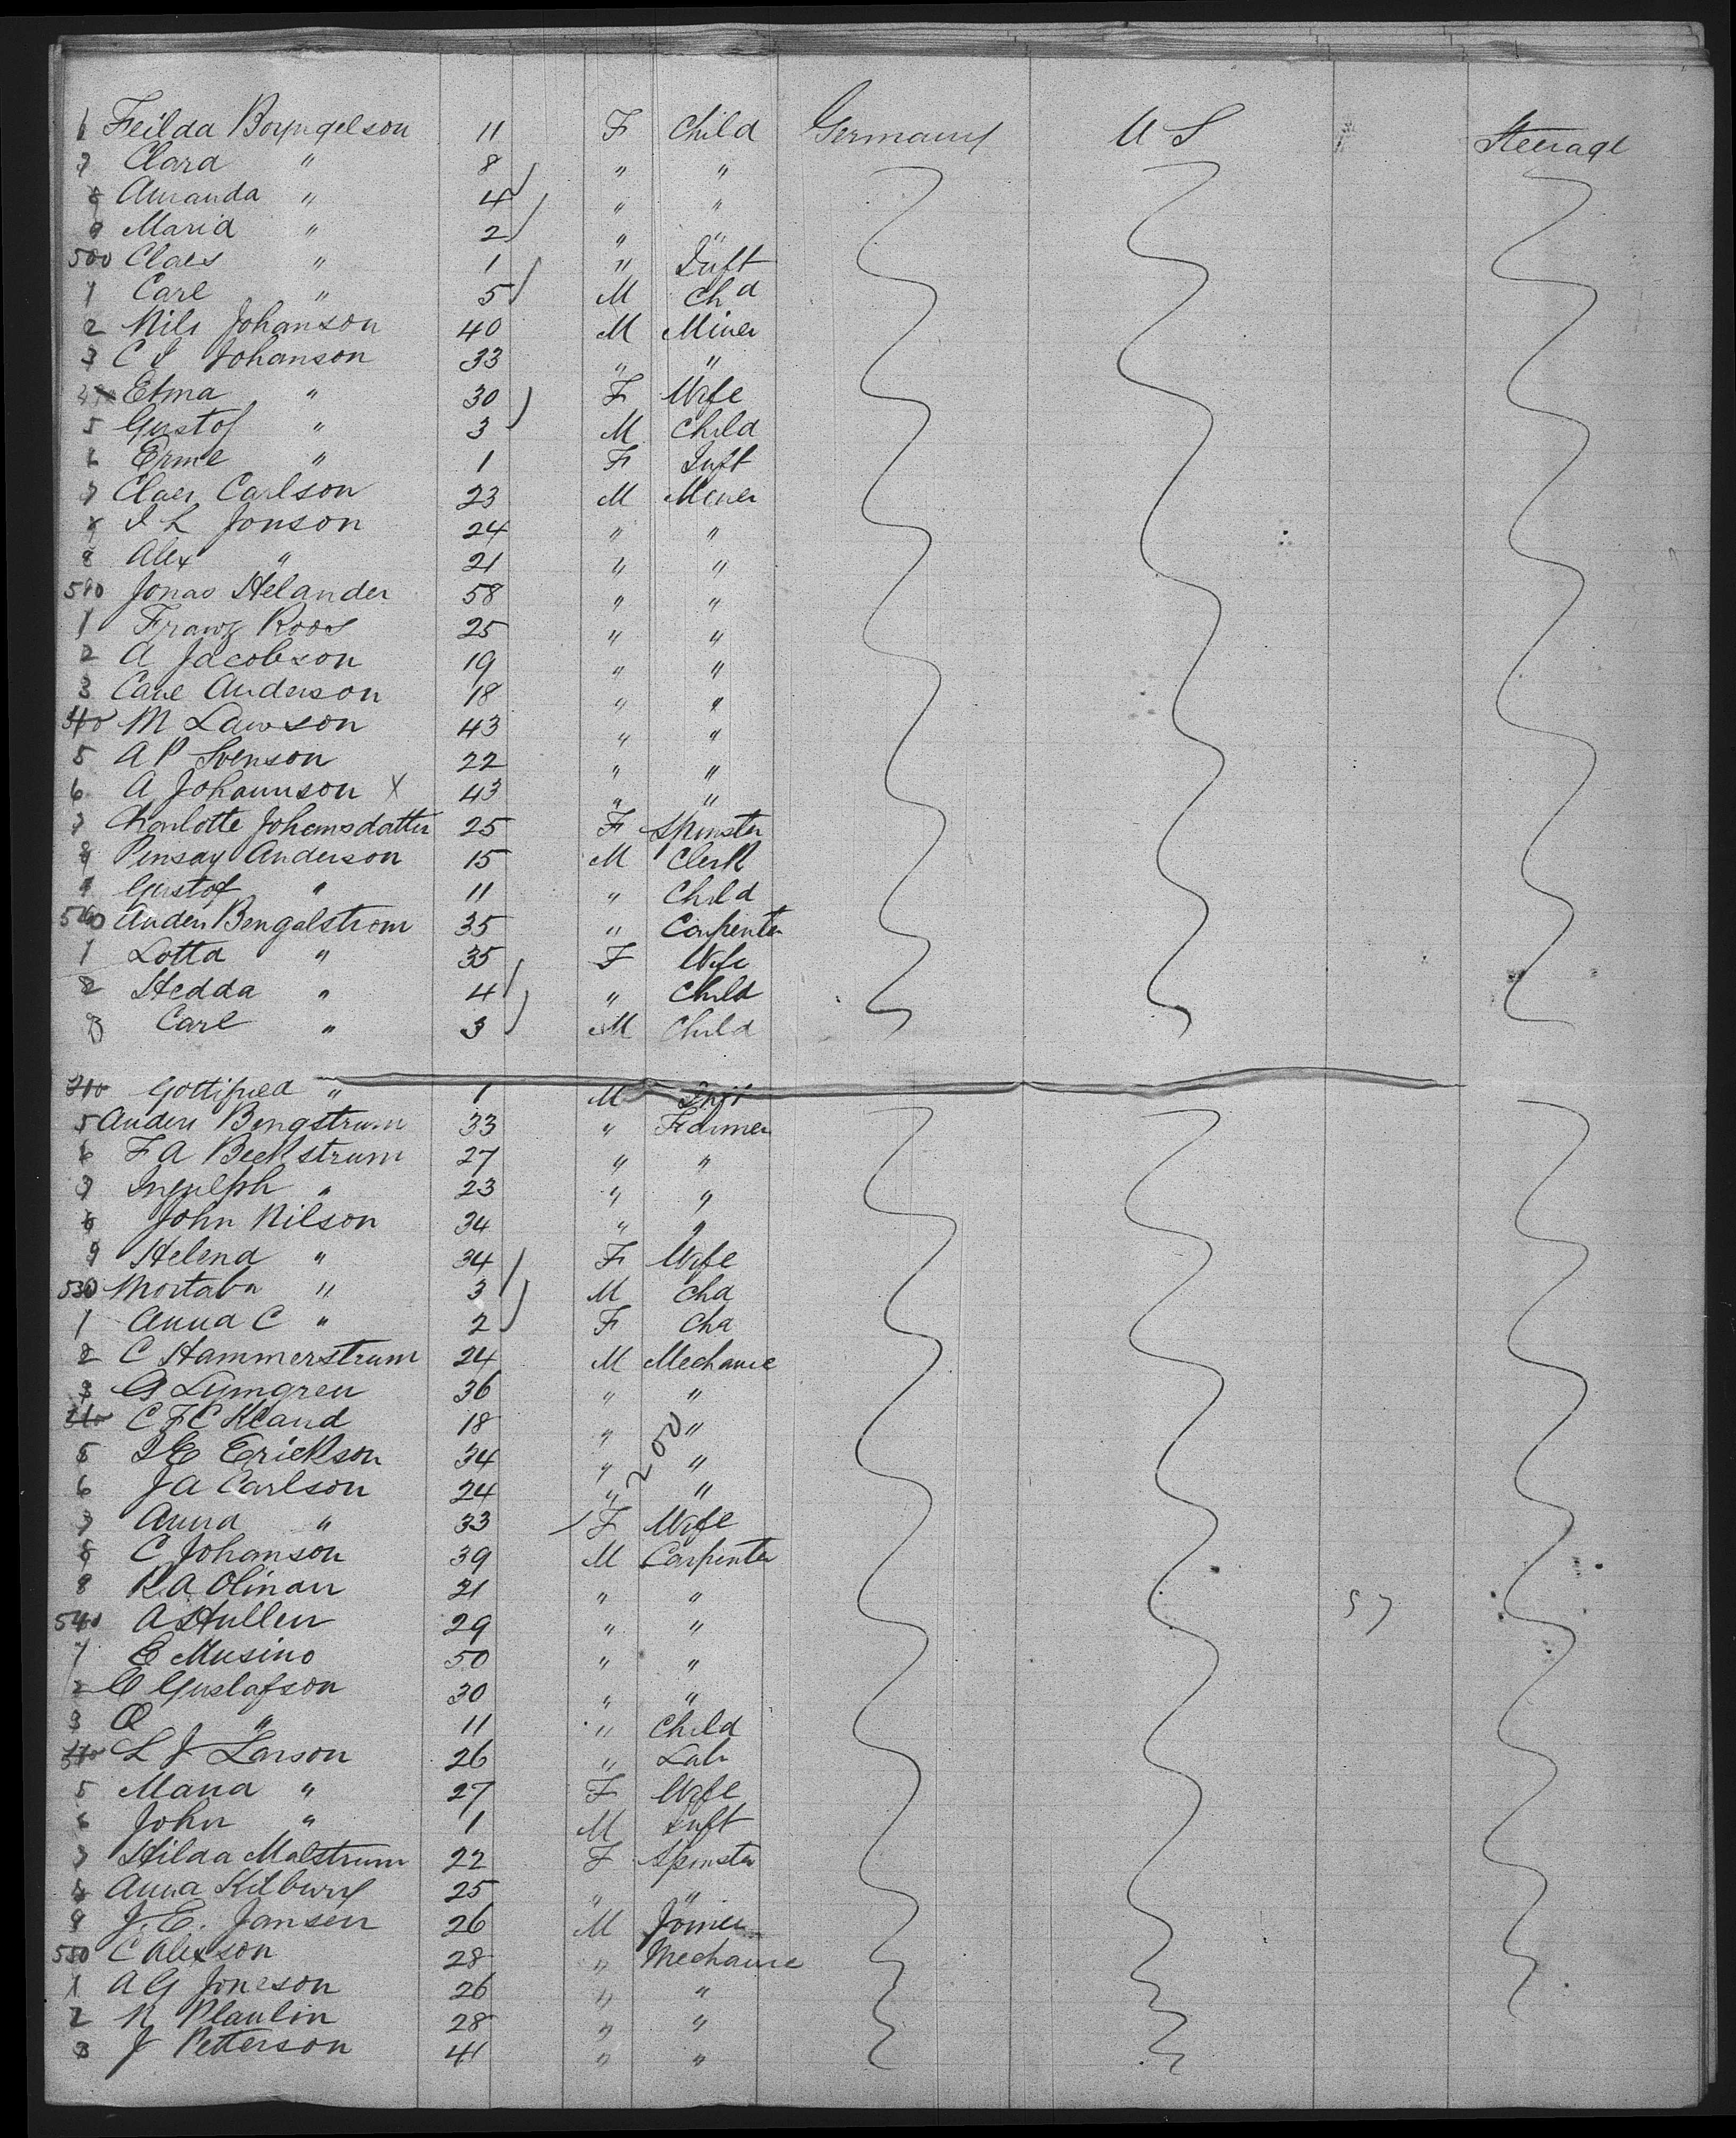 6 Feilda Boyngelson 11 F Child Germany U S Steerage
7 Clara " 8 " "
8 Amanda " 4 " "
9 Maria " 2 " "
500 Claes " 1 " Inft
1 Carl " 5 M Chd
2 Nils Johanson 40 M Miner
3 C I Johanson 33 " "
Etma " 30 F Wife
5 Gustof " 3 M Child
6 Erme " 1 F Inft
7 Claes Carlson 23 M Miner
8 I L Jonson 24 " "
8 Alex " 21 " "
510 Jonas Helander 58 " "
1 Franz Roos 25 " "
2 A Jacobson 19 " "
3 Carl Anderson 18 " "
M Lawson 43 " "
5 A P Svenson 22 " "
6 A Johannson X 43 " "
7 Charlotte Johansdatter 25 F Spinster
8 Pensay Anderson 15 M Clerk
9 Gustof " 11 " Child
520 Anders Bengalstrom 35 " Carpenter
1 Lotta " 35 F Wife
2 Hedda " 4 " Child
3 Carl " 3 M Child
Gottfried " 1 M Inft
5 Anders Bengstrum 33 " Farmer
6 F A Beckstrum 27 " "
7 Ingulph " 23 " "
8 John Nilson 34 " "
9 Helena " 34 F Wife
530 " 3 M Chd
1 Anna C " 2 F Chd
2 C Hammerstrum 24 M Mechanic
3 G Lymgren 36 " "
C F C Kland 18 " "
5 I E Erickson 34 " 200 "
6 J A Carlson 24 " "
7 Anna " 33 F Wife
8 C Johanson 39 M Carpenter
8 K A Olinan 21 " " 57
540 A Hullen 29 " "
1 E Musino 50 " "
2 C Gustafson 30 " "
3 O " 11 " Child
L J Larson 26 " Lab
5 Maria " 27 F Wife
6 John " 1 M Inft
7 Hilda Malstrum 22 F Spinster
8 Anna Kilburg 25 " "
9 J. E. Jansen 26 M Joiner
550 C Alexson 28 " Mechanic
1 A G Joneson 26 " "
2 N Plaulin 28 " "
3 J Petterson 41 " "